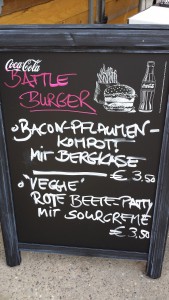 Coca-Cola
BATTLE
BURGER
Coca-Cola
BACON-PFLAUMEN-
KOMPOTT
MIT BERGKÄSE
€ 3,50
"VEGGIE"
ROTE BEETE-PATTY
MIT SOURCREME
€ 3,50